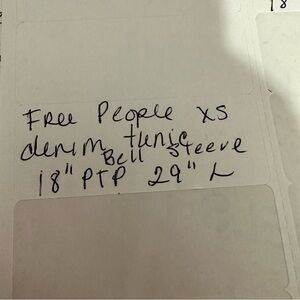 18
Free People XS
denim tunic
Bell Sleeve
18" PTP 29" L